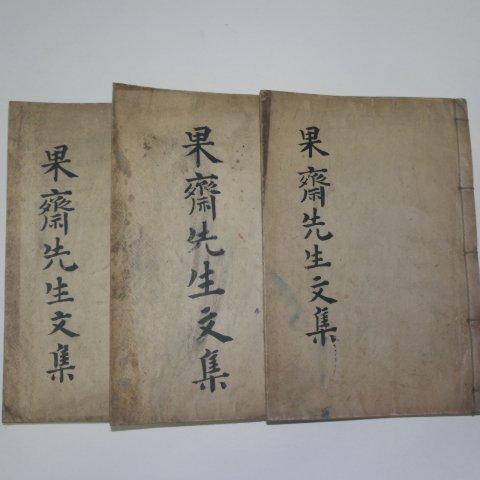 果齋先生文集
果齋先生文集
果齋先生文集